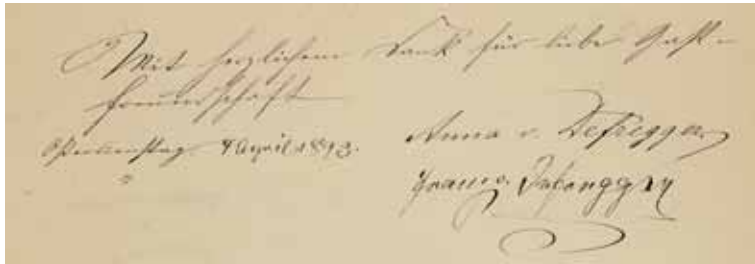 Mit herzlichem Dank für liebe Gast-
freundschaft
Osterdienstag. 4 April 1893.
Anna v. Defregger
Franz v. Defregger